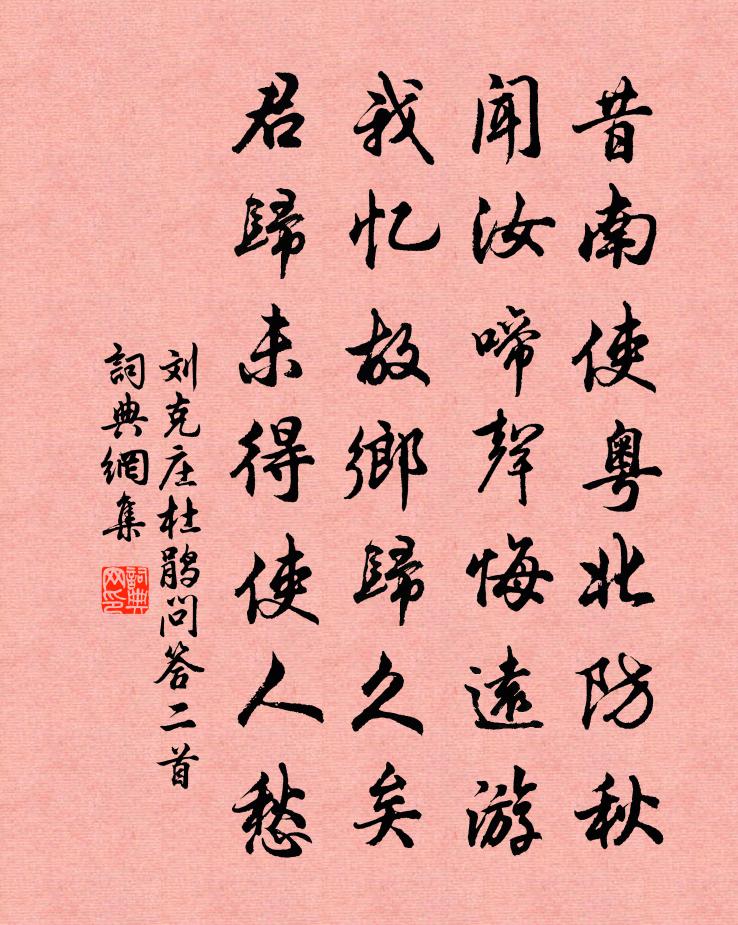 昔南使粤北防秋
闻汝啼聲悔遠游
我忆故鄉歸久矣
君歸未得使人愁
刘克庄杜鹃问答二首
詞典網集
詞典网印